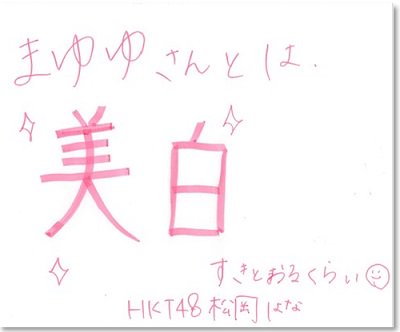 まゆゆさんとは、
美白
すきとおるくらい
HKT48 松岡はな